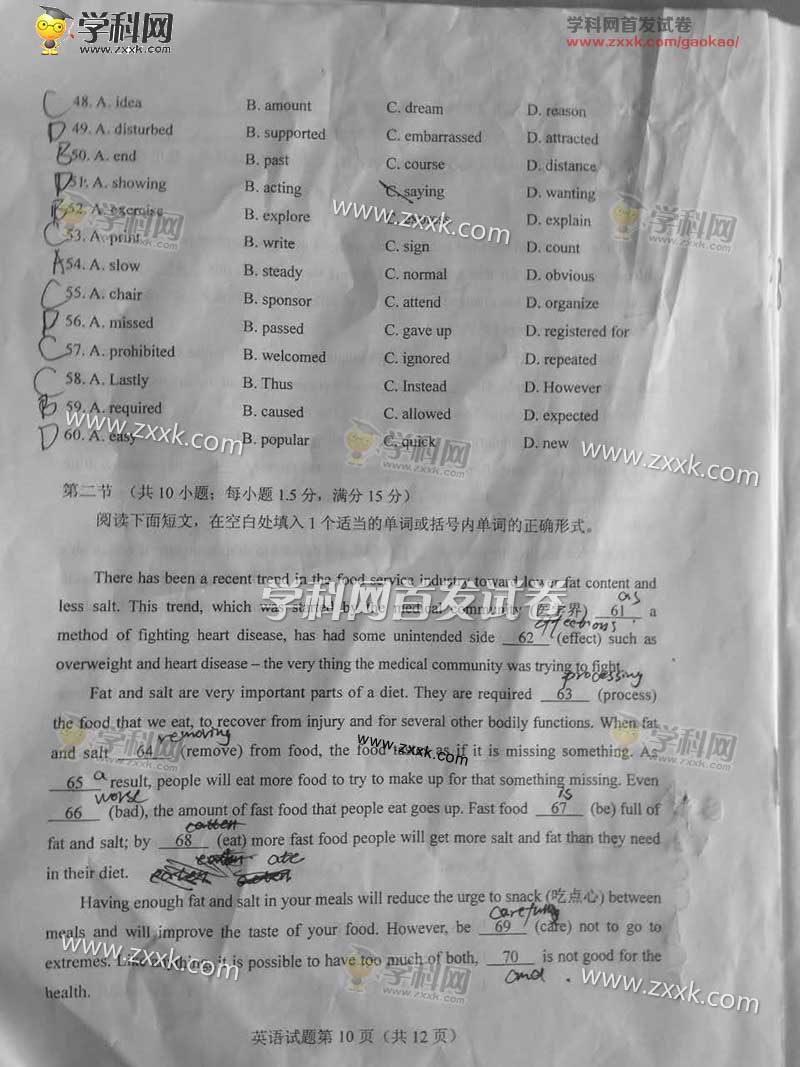 学科网
www.zxxk.com
学科网首发试卷
www.zxxk.com/gaokao/
C 48. A. idea B. amount C. dream D. reason
D 49. A. disturbed B. supported C. embarrassed D. attracted
B 50. A. end B. past C. course D. distance
D 51. A. showing B. acting C. saying D. wanting
B 52. A. exercise B. explore D. explain
C 53. A. print B. write C. sign D. count
A 54. A. slow B. steady C. normal D. obvious
C 55. A. chair B. sponsor C. attend D. organize
D 56. A. missed B. passed C. gave up D. registered for
C 57. A. prohibited B. welcomed C. ignored D. repeated
C 58. A. Lastly B. Thus C. Instead D. However
B 59. A. required B. caused C. allowed D. expected
D 60. A. easy B. popular C. quick D. new
www.zxxk.com
学科网
www.zxxk.com
学科网
www.zxxk.com
学科网
www.zxxk.com
第二节 （共 10 小题；每小题 1.5 分，满分 15 分）
阅读下面短文，在空白处填入 1 个适当的单词或括号内单词的正确形式。
There has been a recent trend in the food service industry toward lower fat content and
学科网首发试卷
as
less salt. This trend, which was started by the medical community (医学界) 61 a
method of fighting heart disease, has had some unintended side 62 (effect) such as
overweight and heart disease – the very thing the medical community was trying to fight.
processing
Fat and salt are very important parts of a diet. They are required 63 (process)
the food that we eat, to recover from injury and for several other bodily functions. When fat
removing
and salt 64 (remove) from food, the food tastes as if it is missing something. As
www.zxxk.com
学科网
学科网
a
65 result, people will eat more food to try to make up for that something missing. Even
worse
is
66 (bad), the amount of fast food that people eat goes up. Fast food 67 (be) full of
fat and salt; by 68 (eat) more fast food people will get more salt and fat than they need
ate
in their diet.
Having enough fat and salt in your meals will reduce the urge to snack (吃点心) between
meals and will improve the taste of your food. However, be 69 (care) not to go to
extremes. Like anything, it is possible to have too much of both, 70 is not good for the
and
health.
www.zxxk.com
学科网
www.zxxk.com
英语试题第 10 页（共 12 页）